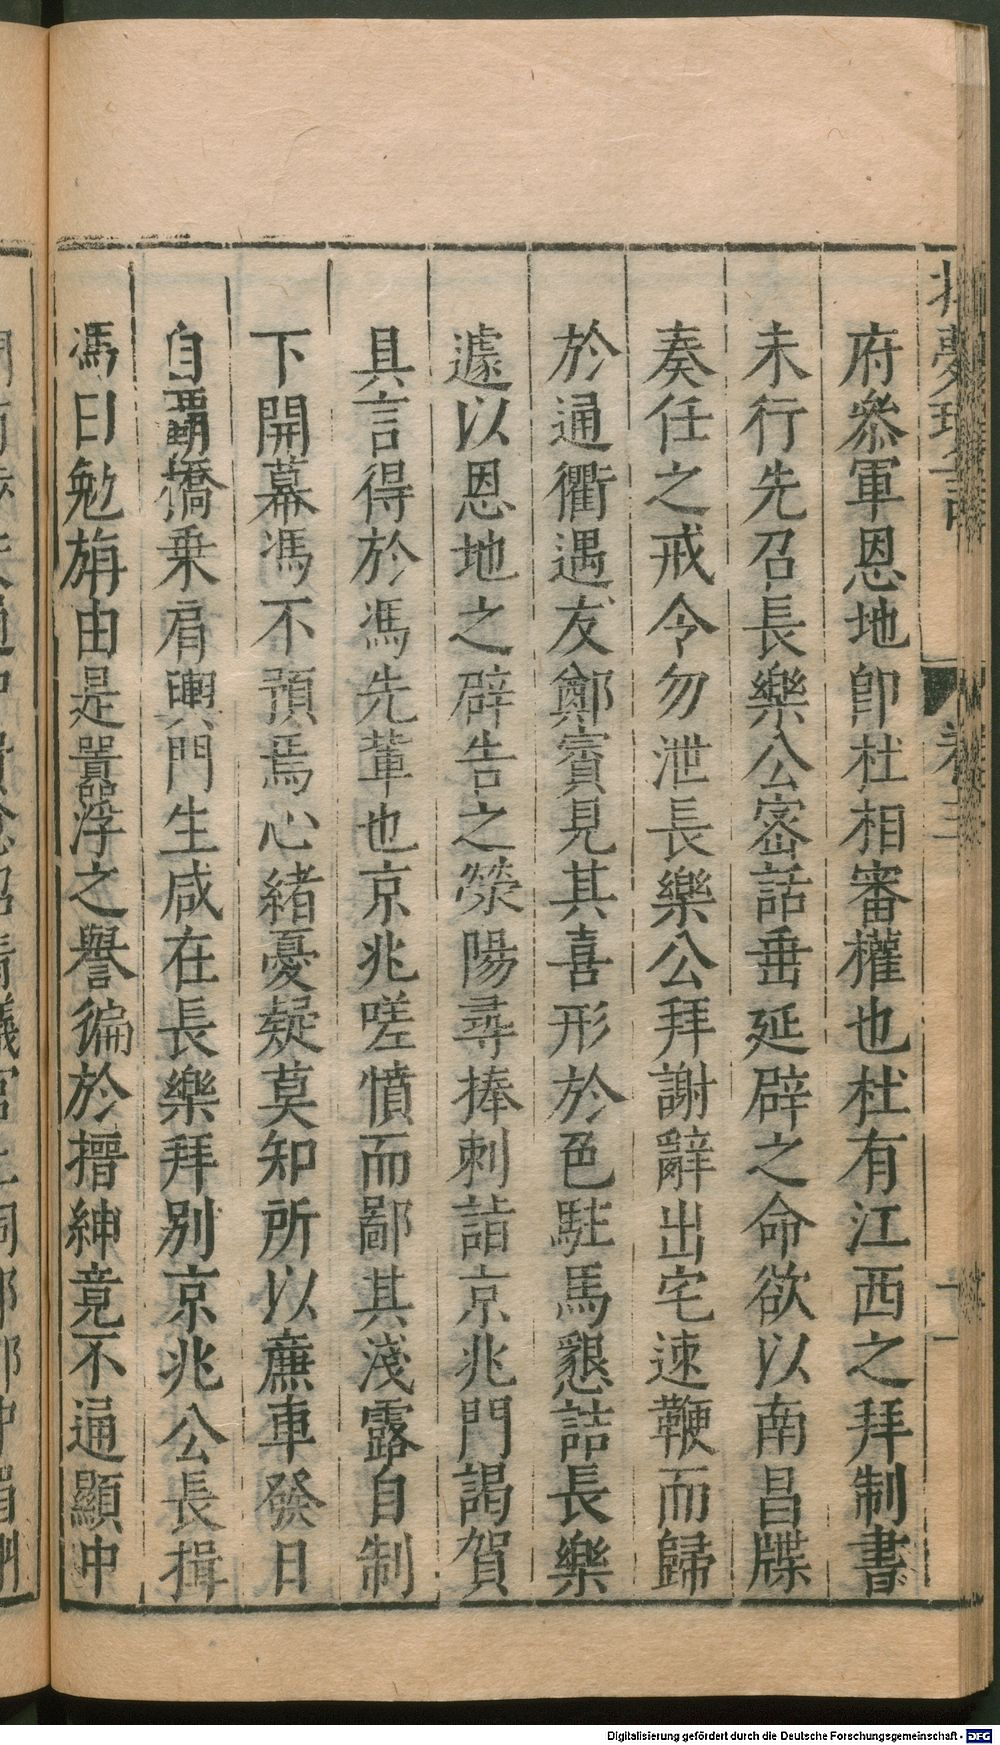 府叅軍恩地卽杜相審權也杜有江西之拜制書
未行先召長樂公密話垂延辟之命欲以南昌牒
奏任之戒令勿泄長樂公拜謝辭出宅速鞭而歸
於通衢遇友鄭賓見其喜形於色駐馬懇詰長樂
遽以恩地之辟告之滎陽尋捧刺詣京兆門謁賀
具言得於馮先輩也京兆嗟憤而鄙其淺露自制
下開幕馮不預焉心緒憂疑莫知所以廉車發日
自霸橋乗肩輿門生咸在長樂拜別京兆公長揖
馮曰勉旃由是嚚浮之譽徧於搢紳竟不通顯中
夢瑣言
卷三
十一
Digitalisierung gefördert durch die Deutsche Forschungsgemeinschaft - DFG